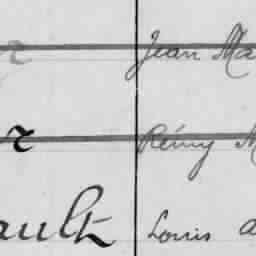 r Jean Ma
r Rémy M
ault Louis a